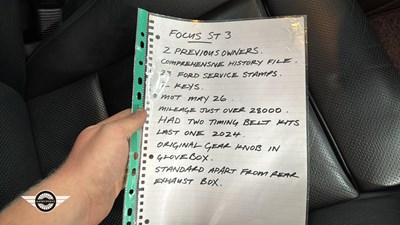 FOCUS ST 3
2 PREVIOUS OWNERS.
COMPREHENSIVE HISTORY FILE.
FORD SERVICE STAMPS.
KEYS.
MOT MAY 26.
MILEAGE JUST OVER 28000.
HAD TWO TIMING BELT KITS
LAST ONE 2024.
ORIGINAL GEAR KNOB IN
GLOVEBOX.
STANDARD APART FROM REAR
EXHAUST BOX.